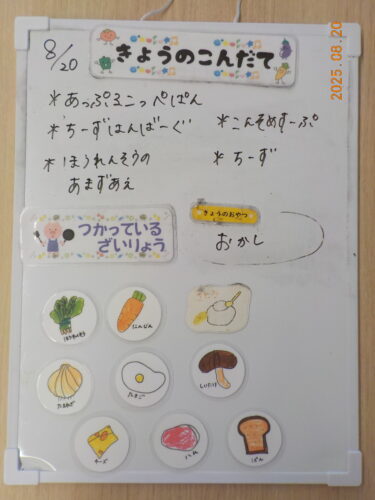 2025.08.20
8/20
きょうのこんだて
*あっぷるこっぺぱん
*ちーずはんばーぐ
*こんそめすーぷ
*ほうれんそうの
あまずあえ
*ちーず
つかっている
ざいりょう
きょうのおやつ
おかし
ほうれんそう
にんじん
さとう
たまねぎ
たまご
しいたけ
チーズ
にく
ぱん